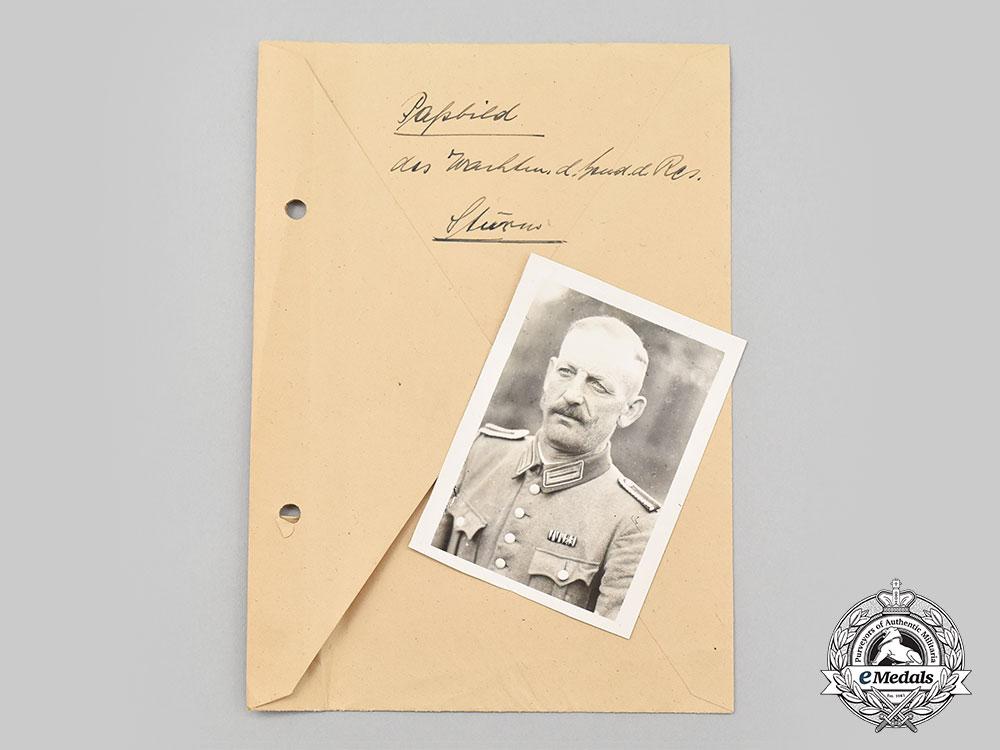 Paßbild
des Wachtm. d. Gend. d. Res.
Sturm
Purveyors of Authentic Militaria
eMedals